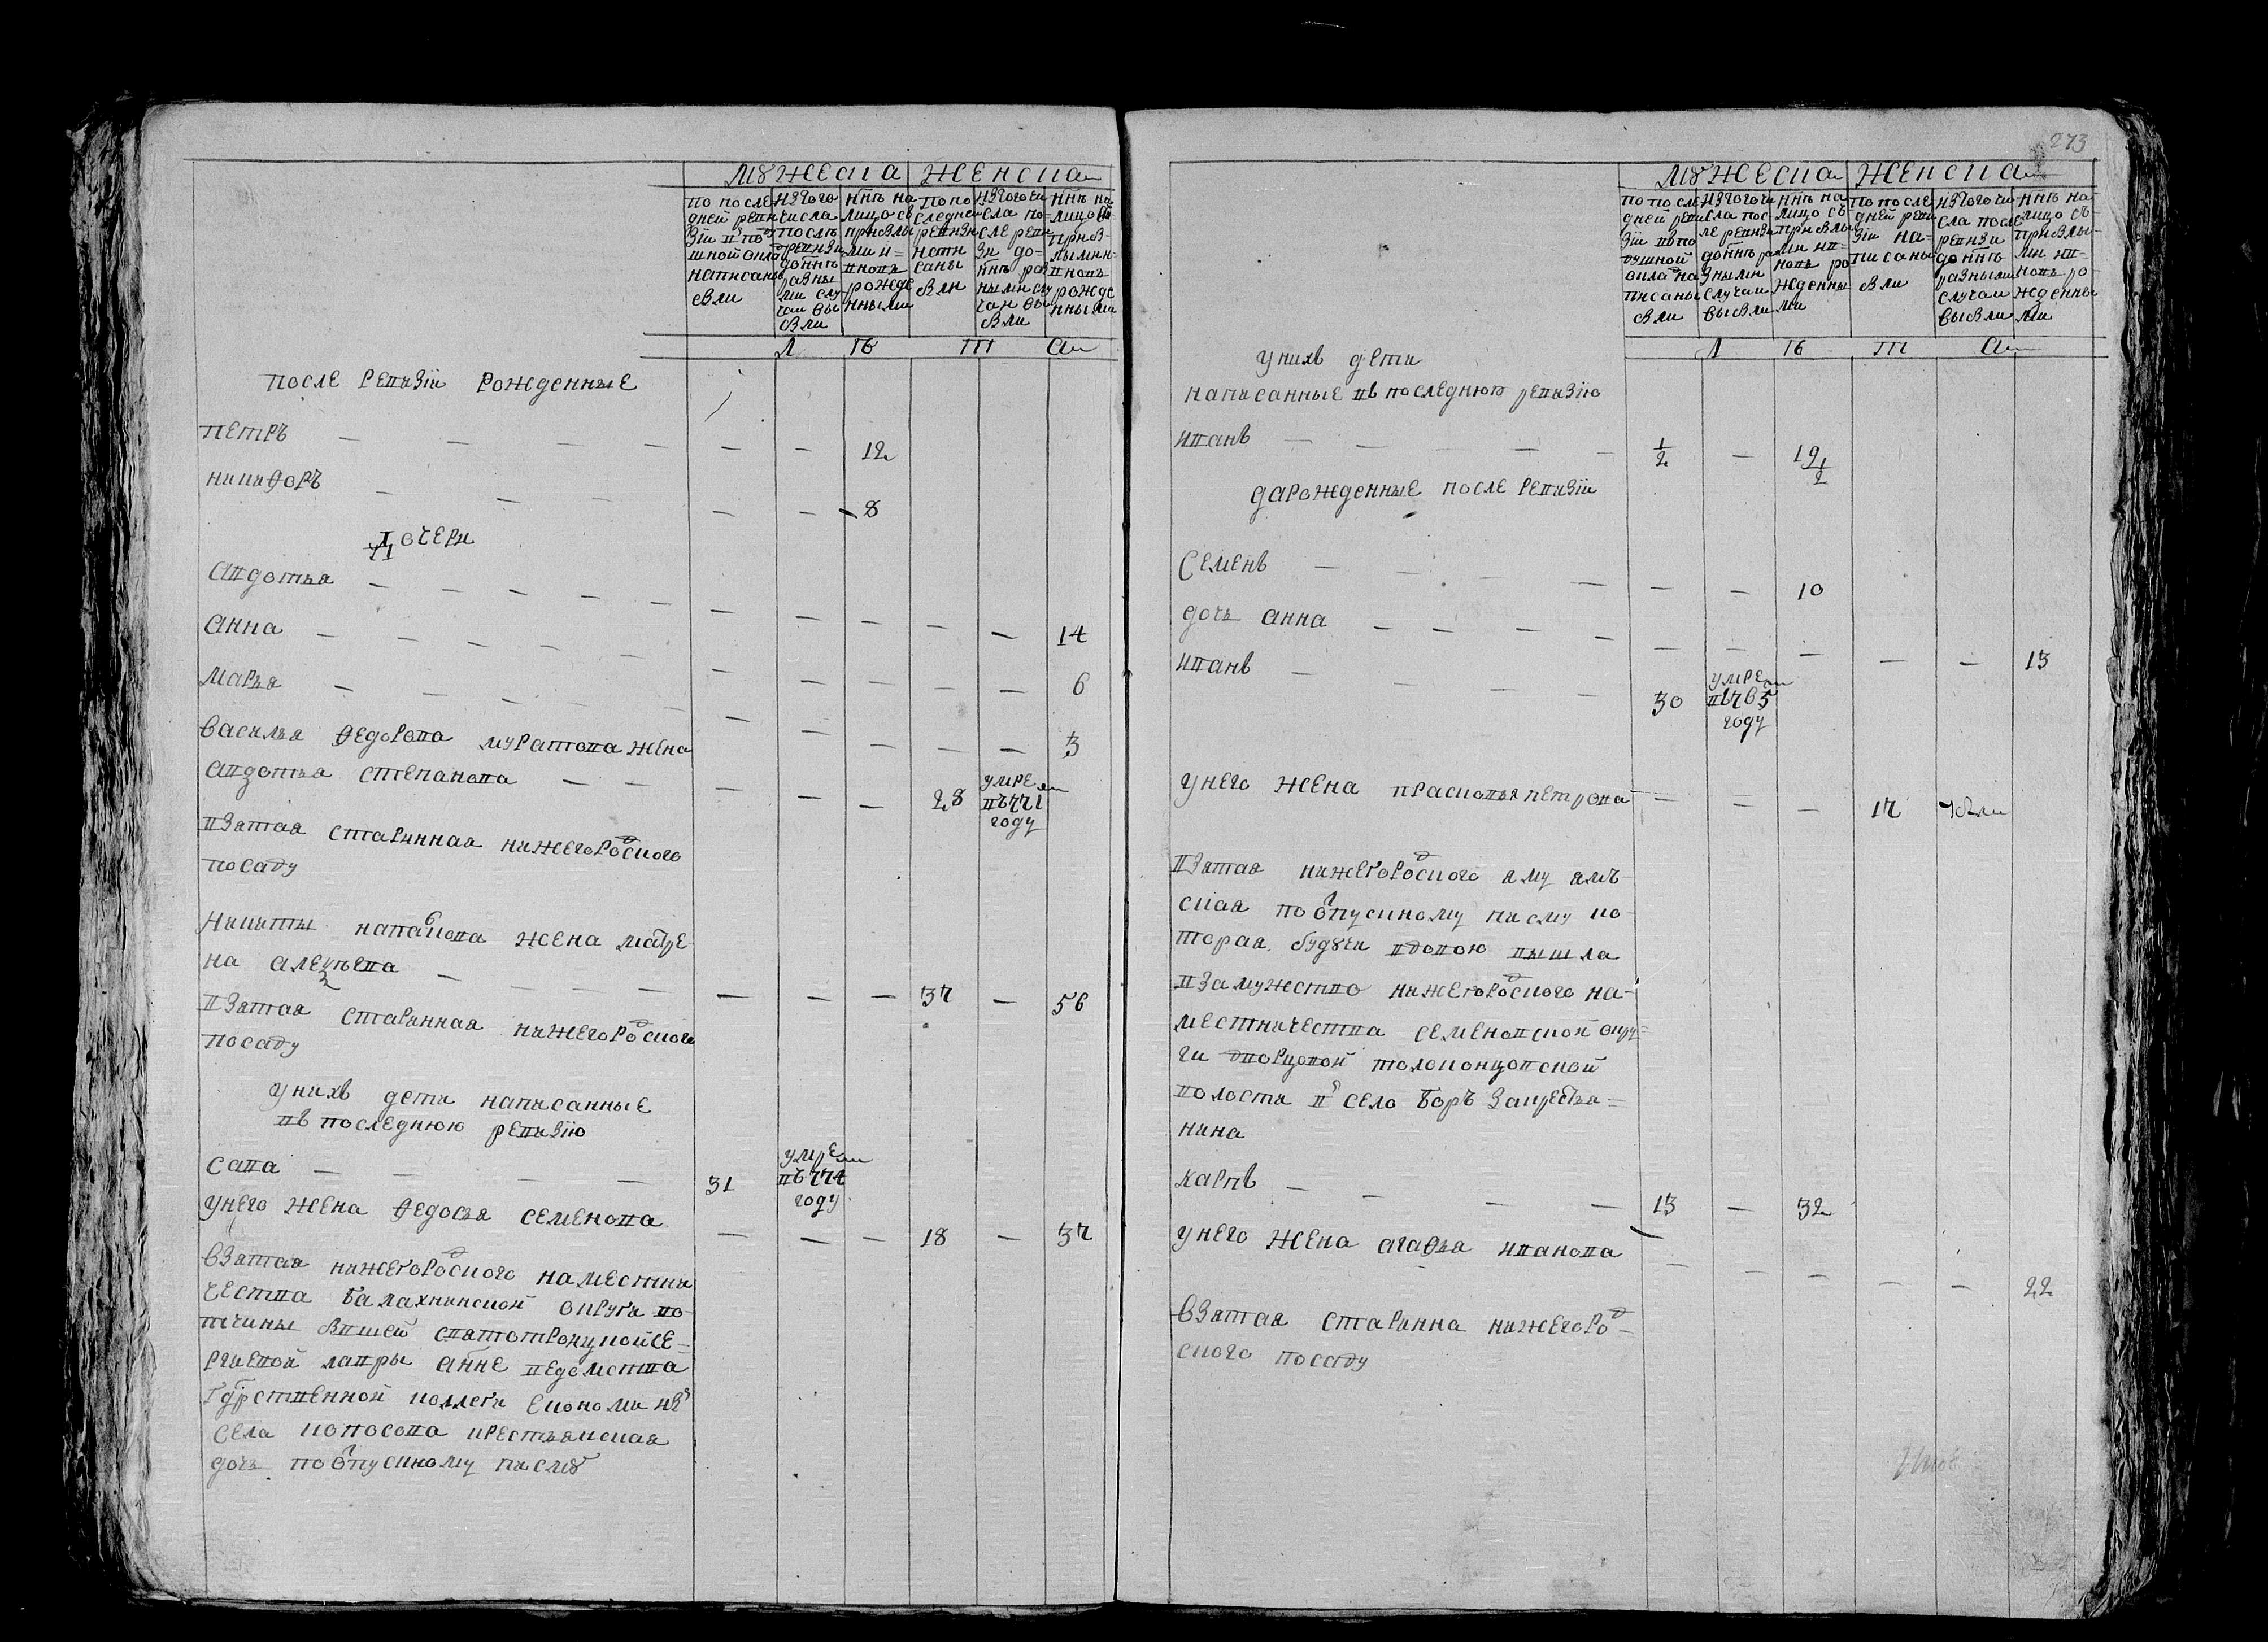 мꙋжеска женска
по последней ревизіи въ подушной окладъ написаны были
изъ того числа после ревизіи до ннѣ разными случаи выбыли
ннѣ на лицо съ прибылыми и вновь рожденными
по последней ревизи написаны были
изъ того числа после ревизи до ннѣ разными случаи выбыли
ннѣ на лицо съ прибылыми и вновь рожденными
Л Ѣ Т А
после ревизіи рожденные
петръ — — — — — — 12
никиѳоръ — — — — — 8
Дочери
авдотья — — — — — — — — — — — 14
анна — — — — — — — — — 6
марья — — — — — — — — — 3
василья ѳедорова муратова жена
авдотья степанова — — — — — 28 умре въ 771 году
взятая старинная нижегородского
посаду
никиты жена матре-
на — — — — — — — 37 — 56
взятая старинная нижегородского
посаду
у нихъ дети написанные
въ последнюю ревизію
сава — — — — 31 умре въ 774 году
у него жена ѳедосья семенова — — — 18 — 37
взятая нижегородского наместни
чества балахнинской округи во-
тчины бывшей святотроицкой се-
ргиевой лавры а ннѣ ведомства
гдрственной коллеги економи изъ
села копосова крестьянская
дочь по отпускному писмꙋ
273
мꙋжеска женска
по последней ревизіи въ подушной окладъ написаны были
изъ того числа после ревизи до ннѣ разными случаи выбыли
ннѣ на лицо съ прибылыми и вновь рожденными
по последней ревизіи написаны были
изъ того числа после ревизи до ннѣ разными случаи выбыли
ннѣ на лицо съ прибылыми и вновь рожденными
Л Ѣ Т А
у нихъ дети
написанные въ последнюю ревизію
иванъ — — — — — 1/2 — 19 1/2
да рожденные после ревизіи
Семенъ — — — — — — 10
дочь анна — — — — — — — — — 13
иванъ — — — — 30 умре въ 765 году
у него жена прасковья петрова — — — 17
взятая нижегородского яму ямъ-
ская по отпускному писму ко-
торая будучи вдовою вышла
в замужество нижегородского на-
местничества семеновской окру=
ги дворцовой толоконцовской
волости в село боръ за крестья=
нина
карпъ — — — — 13 — 32
у него жена агаѳья иванова — — — — — 22
взятая старинна нижегород-
ского посаду